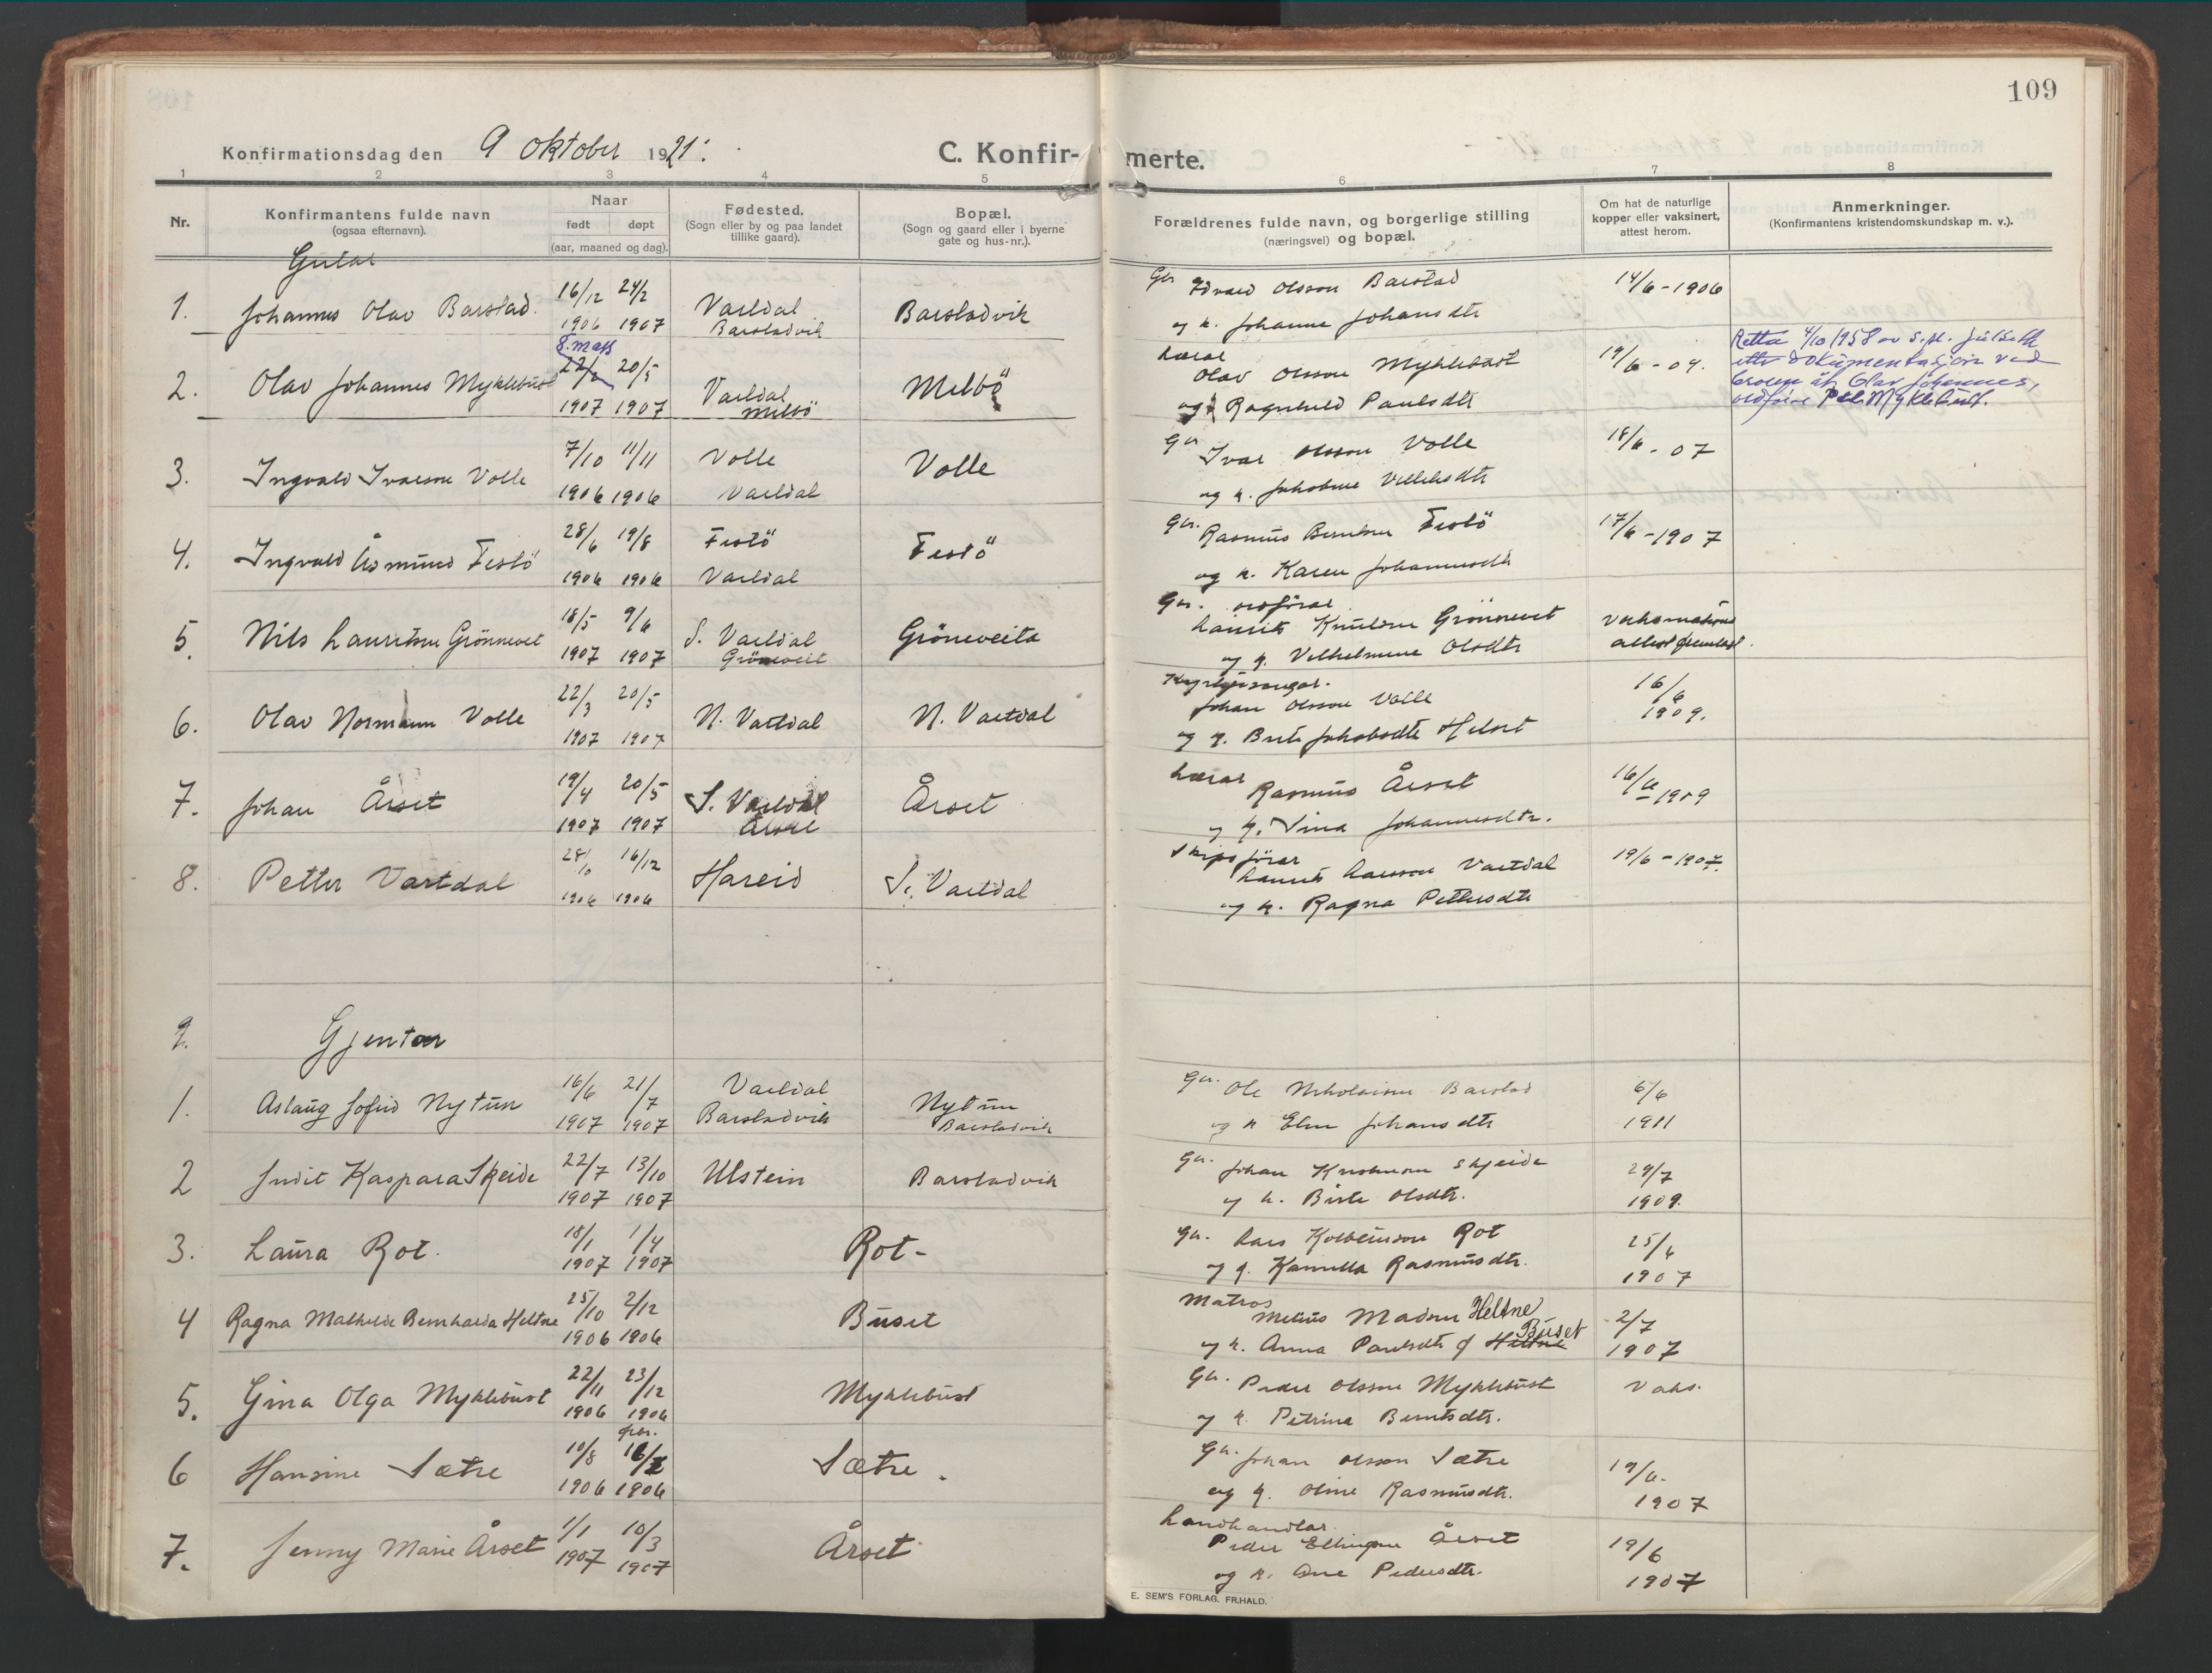 109
Konfirmationsdag den 9 oktober 1921.
C. Konfirmerte.
1 2 3 4 5 6 7 8
Nr.
Konfirmantens fulde navn
(ogsaa efternavn).
Naar
født døpt
(aar, maaned og dag).
Fødested.
(Sogn eller by og paa landet
tillike gaard).
Bopæl.
(Sogn og gaard eller i byerne
gate og hus-nr.).
Forældrenes fulde navn, og borgerlige stilling
(næringsvei) og bopæl.
Om hat de naturlige
kopper eller vaksinert,
attest herom.
Anmerkninger.
(Konfirmantens kristendomskundskap m. v.).
Gutar
1. Johannes Olav Barstad. 16/12 24/2 Vartdal Barstadvik Gbr Edvard Olsson Barstad 14/6-1906
1906 1907 Barstadvik og k. Johanne Johansdtr
8. mars
2. Olav Johannes Myklebust 22/2 20/5 Vartdal Melbö Lærar Olav Olsson Myklebust 19/6-09.
1907 1907 Melbö og k Ragnhild Paulsdtr
Retta 4/10 1958 av S.pr.
etter dokumentasjon ved
broren åt Olav Johannes,
ordførar Peder Myklebust.
3. Ingvald Ivarson Volle 7/10 11/11 Volle Volle Gbr Ivar Olsson Volle 18/6-07
1906 1906 Vartdal og k. Jakobine
4. Ingvald Åsmund Festö 28/6 19/8 Festö Festö Gbr. Rasmus Berntsen Festö 17/6-1907
1906 1906 Vartdal og k. Karen Johannesdtr
5. Nils Lauritson Grönnevet 18/5 9/6 S. Vartdal Gröneveita Gbr. ordförar Laurits Knutson Grönnevet vaksinations
1907 1907 Gröneveit og k. Vilhelmine Olsdtr attest fremlagt.
6. Olav Normann Volle 22/3 20/5 N. Vartdal N. Vartdal Kyrkjesongar. Johan Olsson Volle 16/6
1907 1907 og k. Brite Jakobsdtr 1909.
7. Johan Årset 19/4 20/5 S. Vartdal Årset Lærar Rasmus Årset 16/6-1909
1907 1907 Årset og k. Sina Johannesdtr.
8. Petter Vartdal 28/10 16/12 Hareid S. Vartdal Skipsförar Laurits Larsson Vartdal 19/6-1907.
1906 1906 og k. Ragna Pettersdtr
9. Gjentor
1. Aslaug Jofrid Nytun 16/6 21/7 Vartdal Nytun Gbr. Ole Nikolaison Barstad 6/6
1907 1907 Barstadvik Barstadvik og k Elen Johansdtr 1911
2 Judit Kaspara Skeide 22/7 13/10 Ulstein Barstadvik Gbr. Johan Skjeide 29/7
1907 1907 og k. Birte Olsdtr. 1909.
3. Laura Rot. 18/1 1/4 Rot- Gbr. Lars Kolbeinson Rot 25/6
1907 1907 og k. Kamilla Rasmusdtr. 1907
4 Ragna Mathilde Bernharda Heltne 25/10 2/12 Buset Matros Melius Madsen Heltne 2/7
1906 1906 og k. Anna Paulsdtr f Heltne Buset 1907
5. Gina Olga Myklebust 22/11 23/12 Myklebust Gbr. Peder Olsson Myklebust Vaks.
1906 1906 og k. Petrina Berntsdtr.
6 Hansine Sætre 10/8 16/ Sætre. Gbr. Johan Olsson Sætre 19/6.
1906 1906 og k. Oline Rasmusdtr. 1907
7. Jenny Marie Årset 1/1 10/3 Årset Landhandlar. Peder Ellingson Årset 19/6
1907 1907 og k. Ane Pedersdtr. 1907
E. SEM'S FORLAG. FR.HALD.